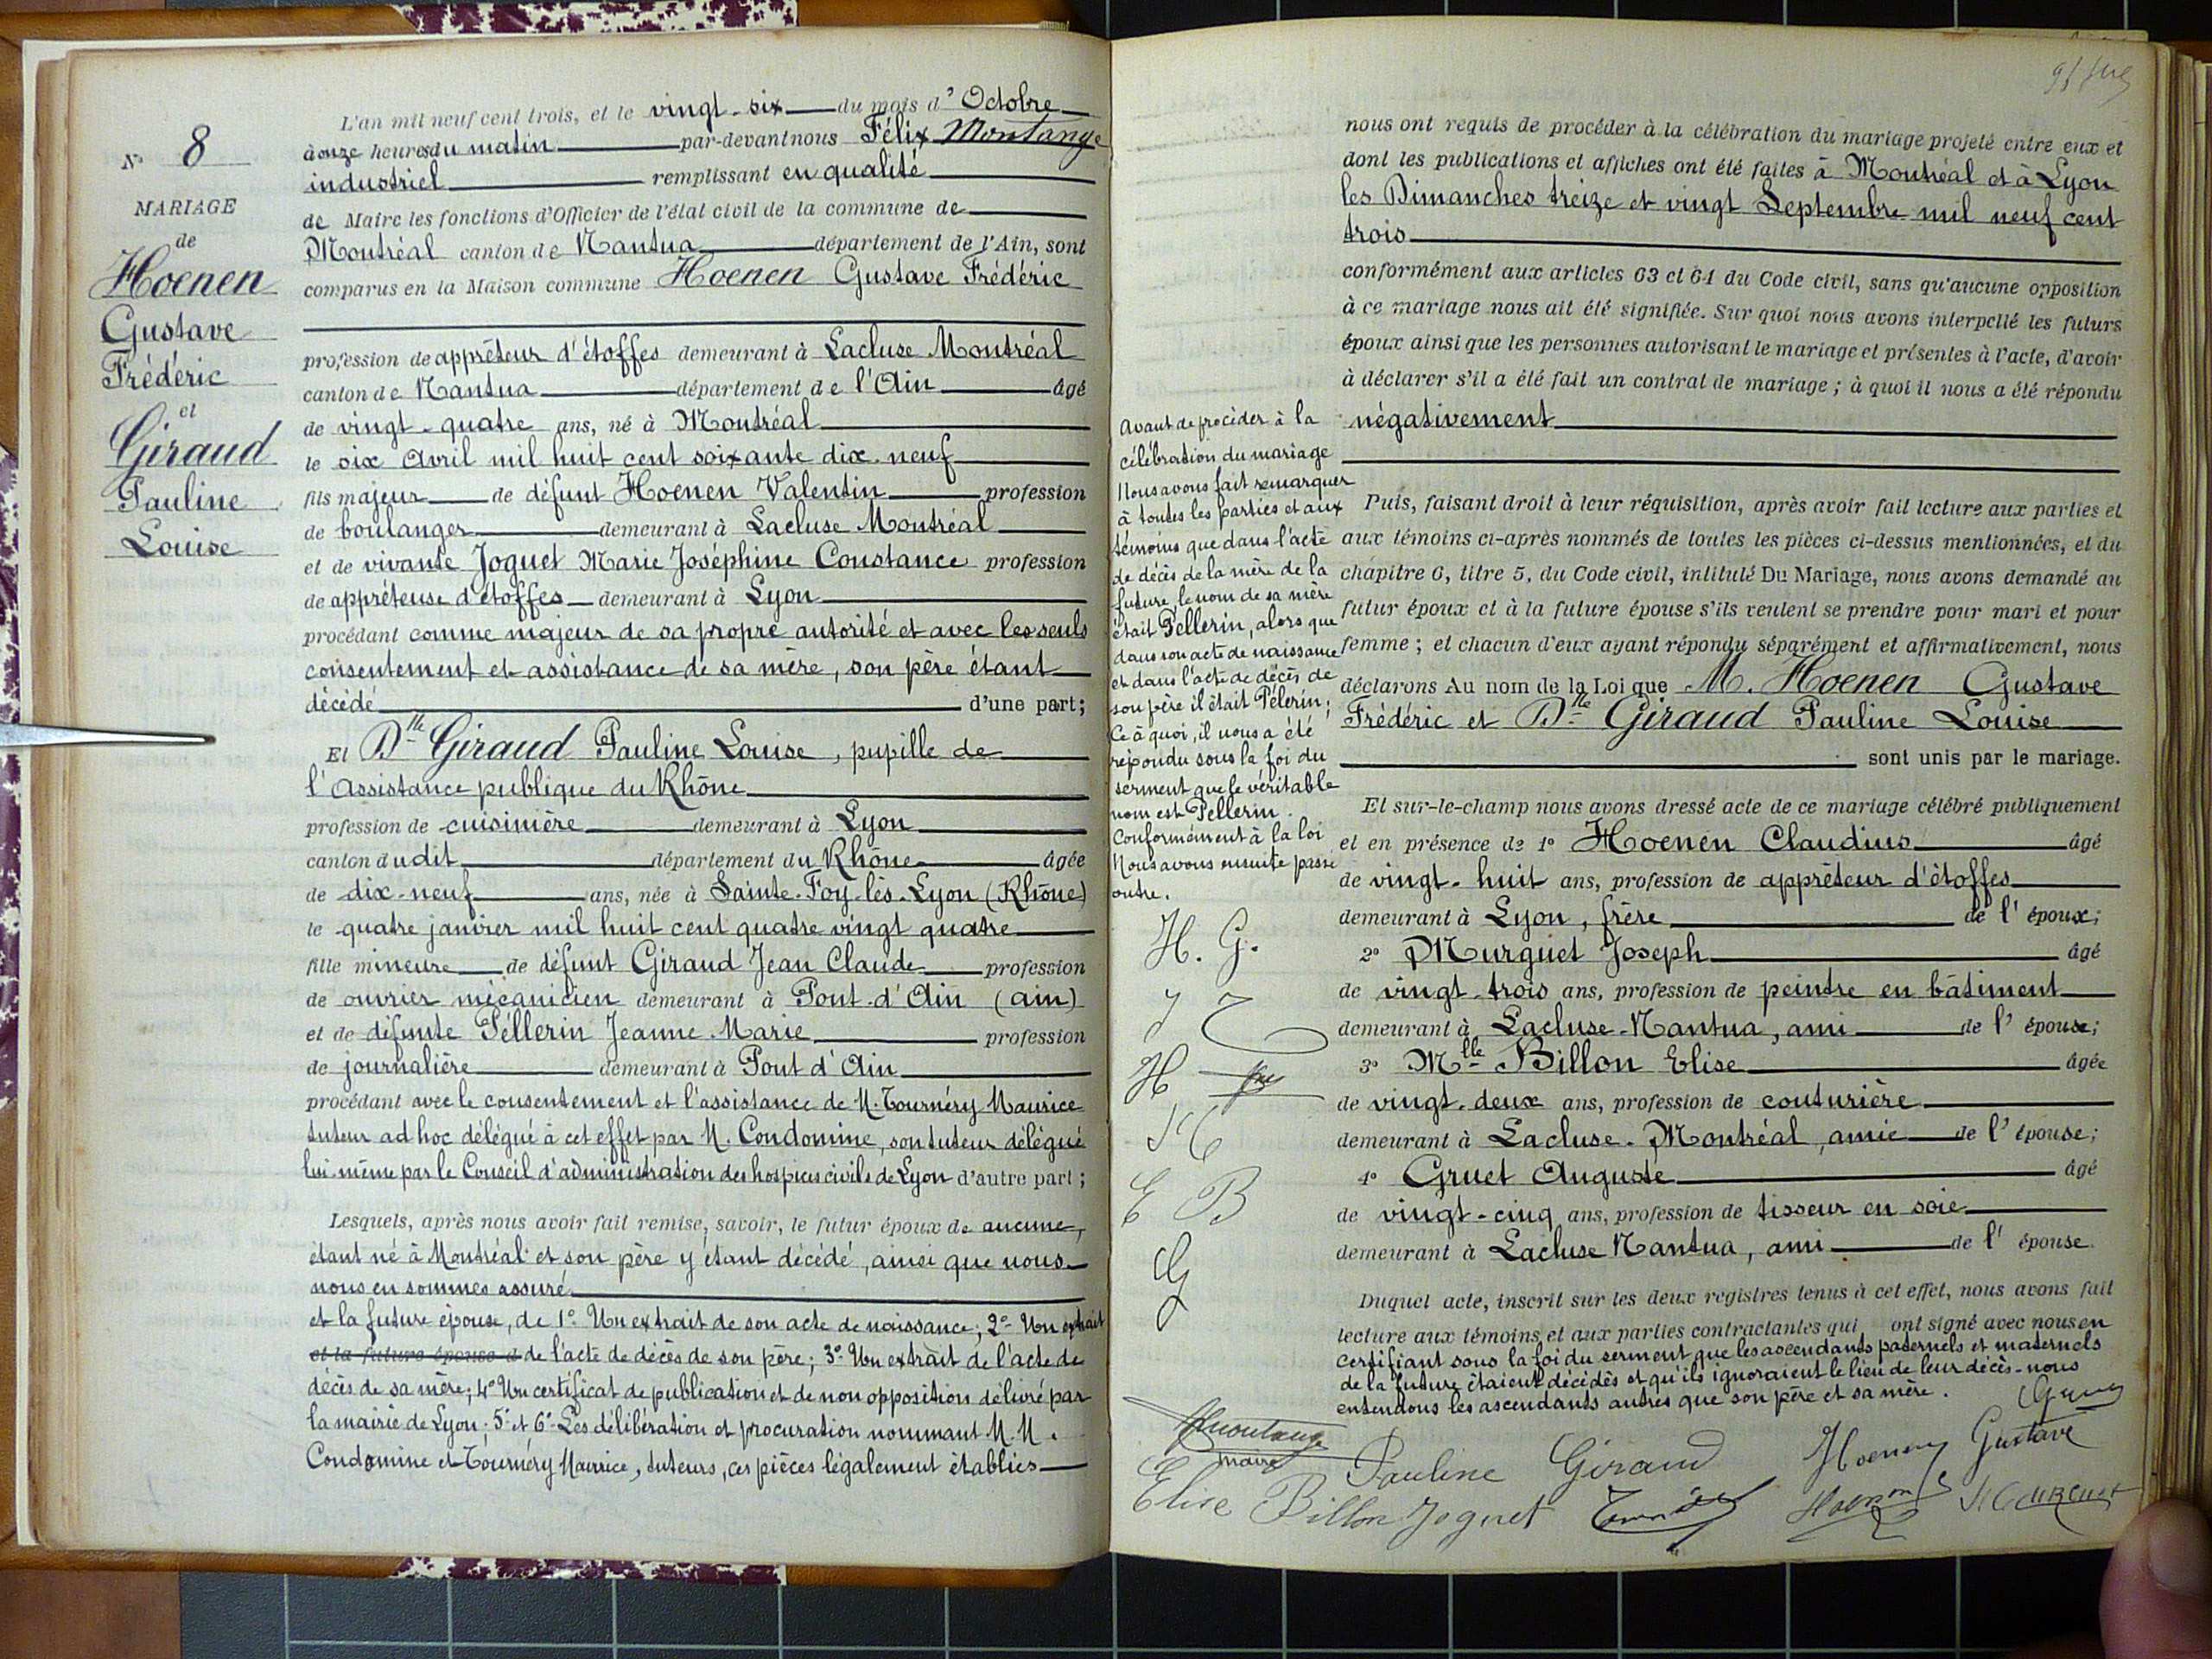 N° 8
MARIAGE
de
Hoenen
Gustave
Frédéric
et
Giraud
Pauline
Louise
L'an mil neuf cent trois, et le vingt-six du mois d'Octobre
à onze heures du matin par-devant nous Félix Montange
industriel remplissant en qualité
de Maire les fonctions d'Officier de l'état civil de la commune de
Montréal canton de Nantua département de l'Ain, sont
comparus en la Maison commune Hoenen Gustave Frédéric
profession de apprêteur d'étoffes demeurant à Lacluse Montréal
canton de Nantua département de l'Ain âgé
de vingt-quatre ans, né à Montréal
le six Avril mil huit cent soixante dix-neuf
fils majeur de défunt Hoenen Valentin profession
de boulanger demeurant à Lacluse Montréal
et de vivante Joguet Marie Joséphine Constance profession
de apprêteuse d'étoffes demeurant à Lyon
procédant comme majeur de sa propre autorité et avec les seuls
consentement et assistance de sa mère, son père étant
décédé d'une part;
Et Dlle Giraud Pauline Louise, pupille de
l'Assistance publique du Rhône
profession de cuisinière demeurant à Lyon
canton dudit département du Rhône âgée
de dix-neuf ans, née à Sainte-Foy-lès-Lyon (Rhône)
le quatre janvier mil huit cent quatre vingt quatre
fille mineure de défunt Giraud Jean Claude profession
de ouvrier mécanicien demeurant à Pont-d'Ain (ain)
et de défunte Péllerin Jeanne-Marie profession
de journalière demeurant à Pont d'Ain
procédant avec le consentement et l'assistance de M. Tournéry Maurice
tuteur ad hoc délégué à cet effet par M. Condomine, son tuteur délégué
lui-même par le Conseil d'administration des hospices civils de Lyon d'autre part;
Lesquels, après nous avoir fait remise, savoir, le futur époux de aucune,
étant né à Montréal et son père y étant décédé, ainsi que nous
nous en sommes assuré
et la future épouse, de 1° Un extrait de son acte de naissance; 2° Un extrait
et la future épouse d de l'acte de décès de son père; 3° Un extrait de l'acte de
décès de sa mère; 4° Un certificat de publication et de non opposition délivré par
la mairie de Lyon; 5° et 6° Les délibération et procuration nommant M.M.
Condomine et Tournéry Maurice, tuteurs, ces pièces légalement établies
nous ont requis de procéder à la célébration du mariage projeté entre eux et
dont les publications et affiches ont été faites à Montréal et à Lyon
les Dimanches treize et vingt Septembre mil neuf cent
trois
conformément aux articles 63 et 64 du Code civil, sans qu'aucune opposition
à ce mariage nous ait été signifiée. Sur quoi nous avons interpellé les futurs
époux ainsi que les personnes autorisant le mariage et présentes à l'acte, d'avoir
à déclarer s'il a été fait un contrat de mariage; à quoi il nous a été répondu
négativement
Avant de procéder à la
célébration du mariage
Nous avons fait remarquer
à toutes les parties et aux
témoins que dans l'acte
de décès de la mère de la
future, le nom de sa mère
était Pellerin, alors que
dans son acte de naissance
et dans l'acte de décès de
son père il était Pélerin;
Ce à quoi, il nous a été
répondu sous la foi du
serment que le véritable
nom est Pellerin.
Conformément à la loi
Nous avons ensuite passé
outre.
H. G.
E B
G
Puis, faisant droit à leur réquisition, après avoir fait lecture aux parties et
aux témoins ci-après nommés de toutes les pièces ci-dessus mentionnées, et du
chapitre 6, titre 5, du Code civil, intitulé Du Mariage, nous avons demandé au
futur époux et à la future épouse s'ils veulent se prendre pour mari et pour
femme; et chacun d'eux ayant répondu séparément et affirmativement, nous
déclarons Au nom de la Loi que M. Hoenen Gustave
Frédéric et Dlle Giraud Pauline Louise
sont unis par le mariage.
Et sur-le-champ nous avons dressé acte de ce mariage célébré publiquement
et en présence de 1° Hoenen Claudius âgé
de vingt-huit ans, profession de apprêteur d'étoffes
demeurant à Lyon, frère de l'époux;
2° Murguet Joseph âgé
de vingt-trois ans, profession de peintre en bâtiment
demeurant à Lacluse-Nantua, ami de l'épouse;
3° Mlle Billon Elise âgée
de vingt-deux ans, profession de couturière
demeurant à Lacluse-Montréal, amie de l'épouse;
4° Gruet Auguste âgé
de vingt-cinq ans, profession de tisseur en soie
demeurant à Lacluse Nantua, ami de l'épouse.
Duquel acte, inscrit sur les deux registres tenus à cet effet, nous avons fait
lecture aux témoins et aux parties contractantes qui ont signé avec nous en
certifiant sous la foi du serment que les ascendants paternels et maternels
de la future étaient décédés et qu'ils ignoraient le lieu de leur décès - nous
entendons les ascendants autres que son père et sa mère.
Montange
maire
Pauline Giraud
Hoenen Gustave
Elise Billon
Joguet